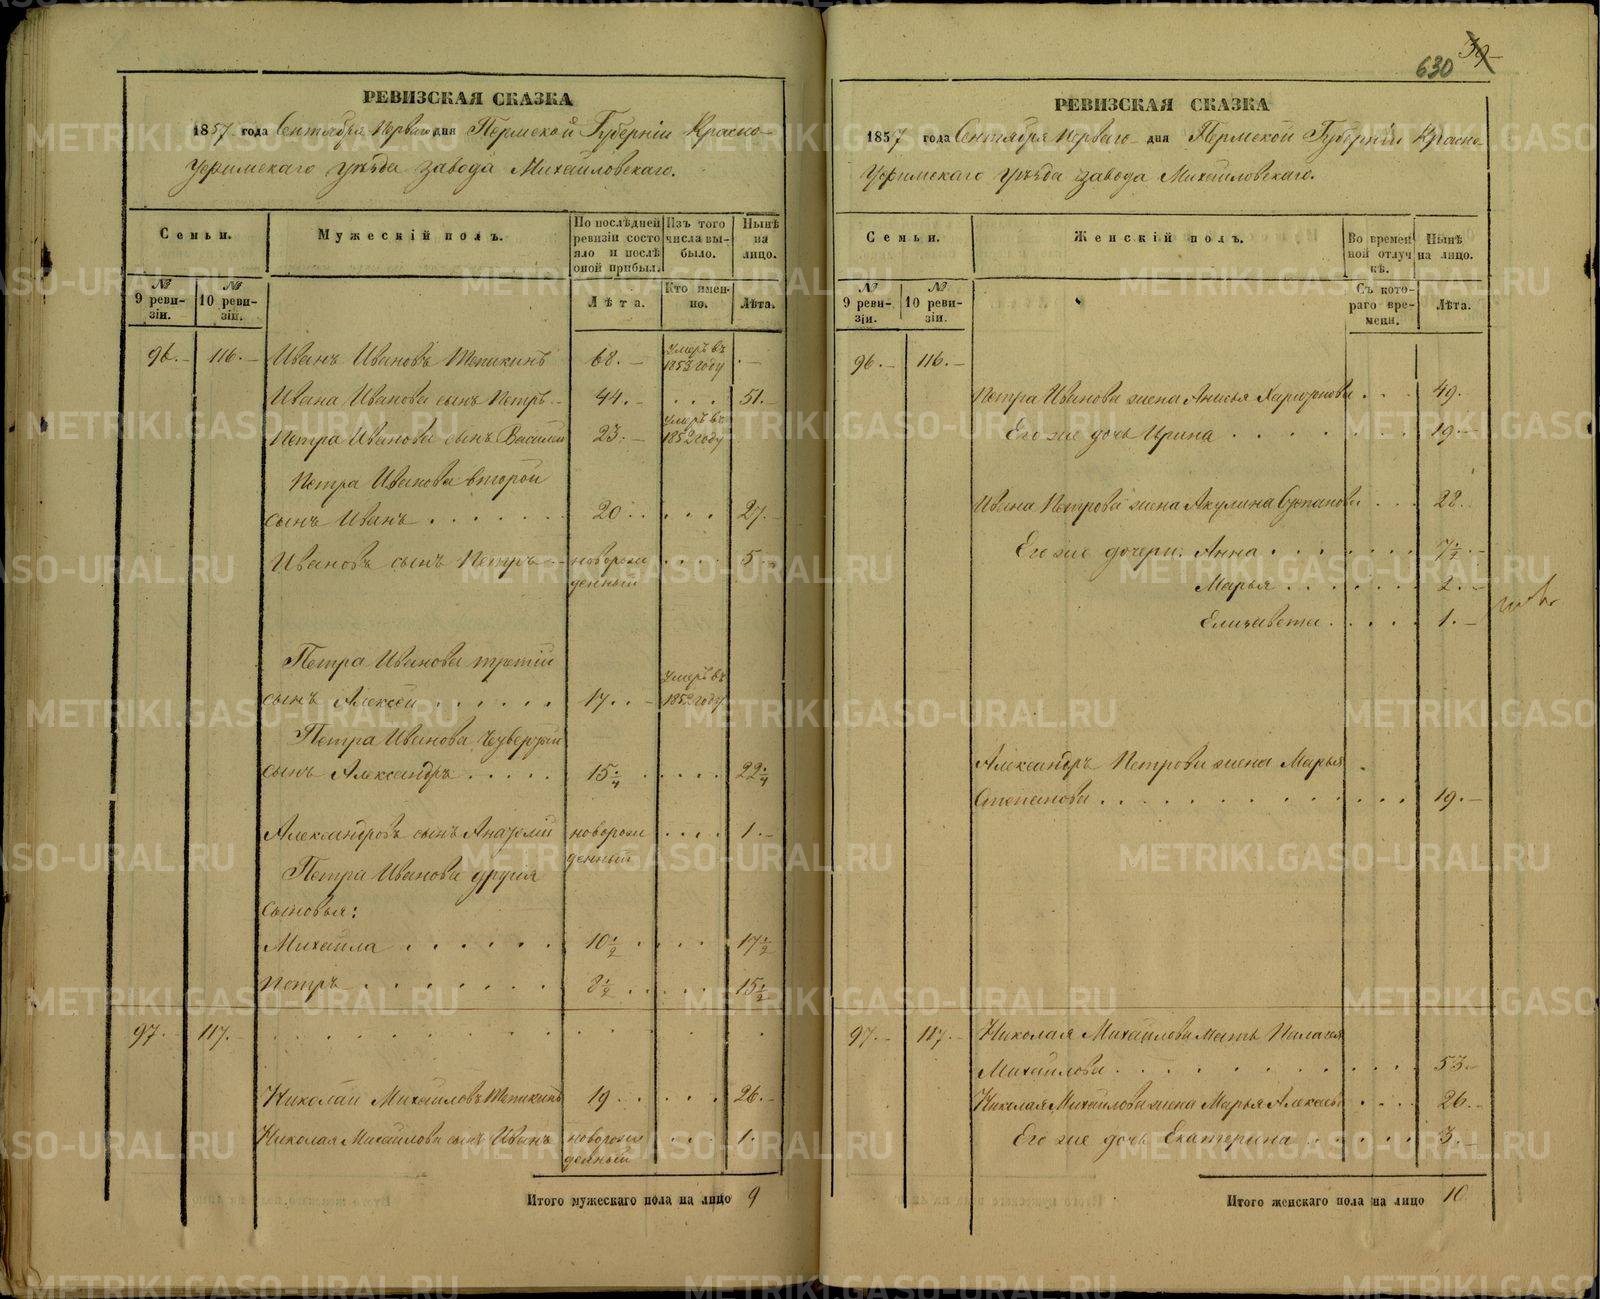 РЕВИЗСКАЯ СКАЗКА
1857 года Сентября перваго дня Пермской Губерніи Красно-
Уфимскаго уѣзда завода Михайловскаго.
Семьи.
Мужескій полъ.
По послѣдней ревизіи состояло и послѣ оной прибыл.
Изъ того числа выбыло.
Нынѣ на лицо.
№ 9 ревизіи.
№ 10 ревизіи.
Лѣта.
Кто именно.
Лѣта.
96. 116. Иванъ Ивановъ 68. Умеръ въ 1853 году
Ивана Иванова сынъ Петръ 44. 51.
Петра Иванова сынъ Василей 23. Умеръ въ году
Петра Иванова второй
сынъ Иванъ 20. 27.
Ивановъ сынъ Петръ новорожденный 5
Петра Иванова третій
сынъ Алексей 17. Умеръ въ году
Петра Иванова четвертый
сынъ Александръ 15 1/4 22 1/4
Александровъ сынъ Анатолій новорожденный 1.
Петра Иванова другія
сыновья:
Михайла 10 1/2 17 1/2
Петръ 8 1/2 15 1/2
97. 117.
Николай Михайловъ 19 26.
Николая Михайлова сынъ Иванъ новорожденный 1.
Итого мужескаго пола на лицо 9
630
39
РЕВИЗСКАЯ СКАЗКА
1857 года Сентября перваго дня Пермской Губерніи Красно-
Уфимскаго уѣзда завода Михайловскаго.
Семьи.
Женскій полъ.
Во временной отлучкѣ.
Нынѣ на лицо.
№ 9 ревизіи.
№ 10 ревизіи.
Съ котораго времени.
Лѣта.
96. 116.
Петра Иванова жена Анисья 49.
Его же дочь Ирина 19.
Ивана Петрова жена Акулина 28.
Его же дочери: Анна 7 1/2
Марья 2.
Елизавета 1.
Александръ Петрова жена Марья
Степанова 19.
97. 117. Николая Михайлова мать Палагея
Михайлова 53.
Николая Михайлова жена Марья Алексеева 26.
Его же дочь Екатерина 3.
Итого женскаго пола на лицо 10
METRIKI.GASO-URAL.RU